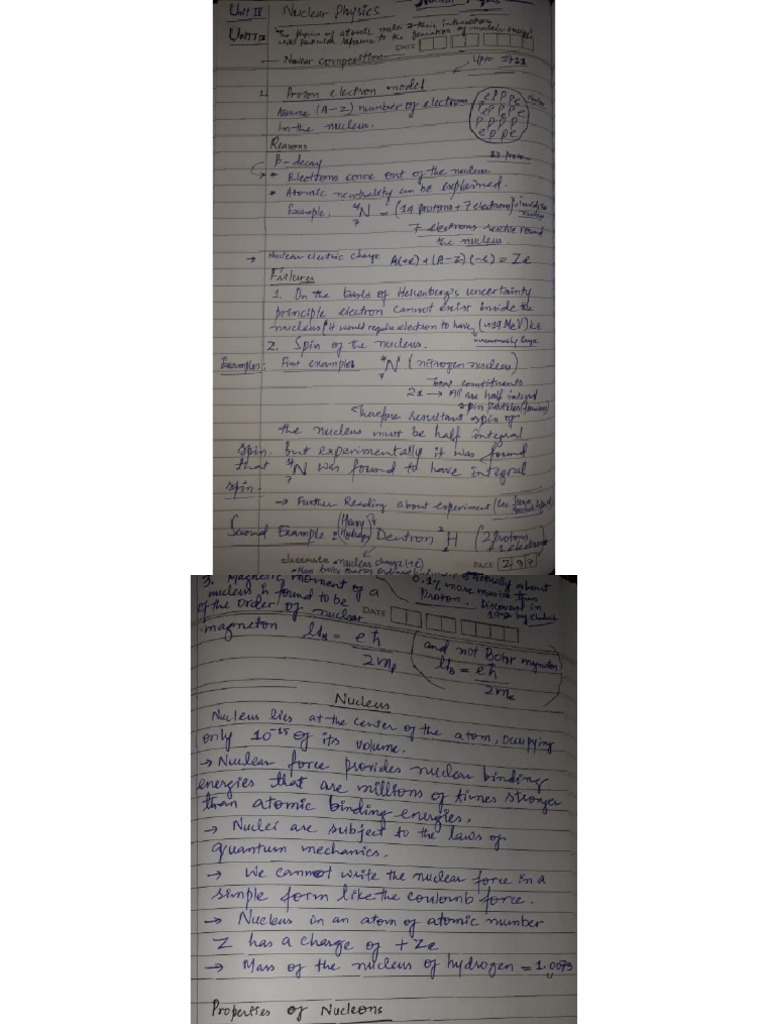 Unit IV Nuclear Physics
UNIT IV The physics of atomic nuclei & their interactions
with particular reference to the generation of nuclear energy
DATE
Nuclear composition
Upto 1932
1. Proton electron model
(A-Z) number of electrons
in the nucleus.
Reasons
β-decay
* Electrons come out of the nucleus
* Atomic neutrality can be explained.
Example. 14 7 N = (14 protons + 7 electrons) inside
7 electrons revolve round
the nucleus.
→ Nuclear electric charge A(+e) + (A-Z)(-e) = Ze
Failures
1. On the basis of Heisenberg's uncertainty
principle electron cannot exist inside the
nucleus (it would require electron to have KE
2. Spin of the nucleus.
Examples: First example 7 N (nitrogen nucleus)
Total constituents
21 → All are half integral
spin particles (fermions)
Therefore resultant spin of
the nucleus must be half integral
spin. but experimentally it was found
that 7 N was found to have integral
spin.
→ Further Reading about experiment
Second Example: (Heavy Hydrogen) Deutron 2 1 H (2 protons
+ 1 electron
PAGE 239
3. Magnetic moment of a
nucleus is found to be
of the order of nuclear
magneton μN = eħ / 2mp
more massive than
Proton. Discovered in
1932 by
DATE
(and not Bohr magneton
μB = eħ / 2me)
Nucleus
Nucleus lies at the center of the atom, occupying
only 10⁻¹⁵ of its volume.
→ Nuclear force provides nuclear binding
energies that are millions of times stronger
than atomic binding energies.
→ Nuclei are subject to the laws of
quantum mechanics.
→ We cannot write the nuclear force in a
simple form like the coulomb force.
→ Nucleus in an atom of atomic number
Z has a charge of +Ze
→ Mass of the nucleus of hydrogen = 1.0073
u
Properties of Nucleons